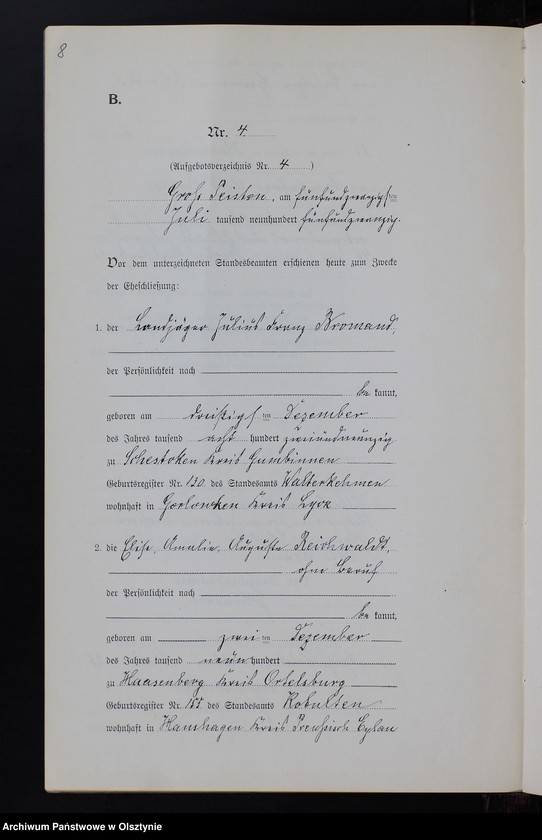 8
B.
Nr. 4.
(Aufgebotsverzeichnis Nr. 4)
Groß Peisten, am fünfundzwanzigsten
Juli tausend neunhundert fünfundzwanzig.
Vor dem unterzeichneten Standesbeamten erschienen heute zum Zwecke
der Eheschließung:
1. der Landjäger Julius Franz Bromand,
der Persönlichkeit nach
be kannt,
geboren am dreißigsten Dezember
des Jahres tausend acht hundert zweiundneunzig
zu Schestoken Kreis Gumbinnen
Geburtsregister Nr. 130. des Standesamts Walterkehmen
wohnhaft in Gorlowken Kreis Lyck
2. die Elise Amalie Auguste Reichwaldt,
ohne Beruf
der Persönlichkeit nach
be kannt,
geboren am zweiten Dezember
des Jahres tausend neun hundert
zu Haasenberg Kreis Ortelsburg
Geburtsregister Nr. des Standesamts Kobulten
wohnhaft in Hanshagen Kreis Preußisch Eylau
Archiwum Państwowe w Olsztynie